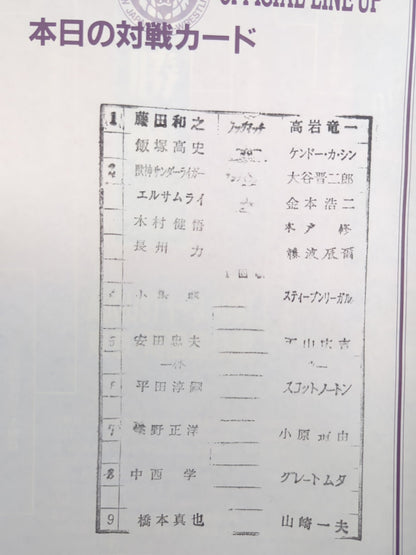 OFFICIAL LINE UP
本日の対戦カード
1 藤田和之 高岩竜一
飯塚高史 ケンドー・カ・シン
2 獣神サンダー・ライガー 大谷晋二郎
エルサムライ 金本浩二
木村健悟 木戸 修
長州 力
スティーブンリーガル
5 安田忠夫
6 平田淳嗣 スコットノートン
7 蝶野正洋 小原
8 中西 学 グレートムタ
9 橋本真也 山崎一夫